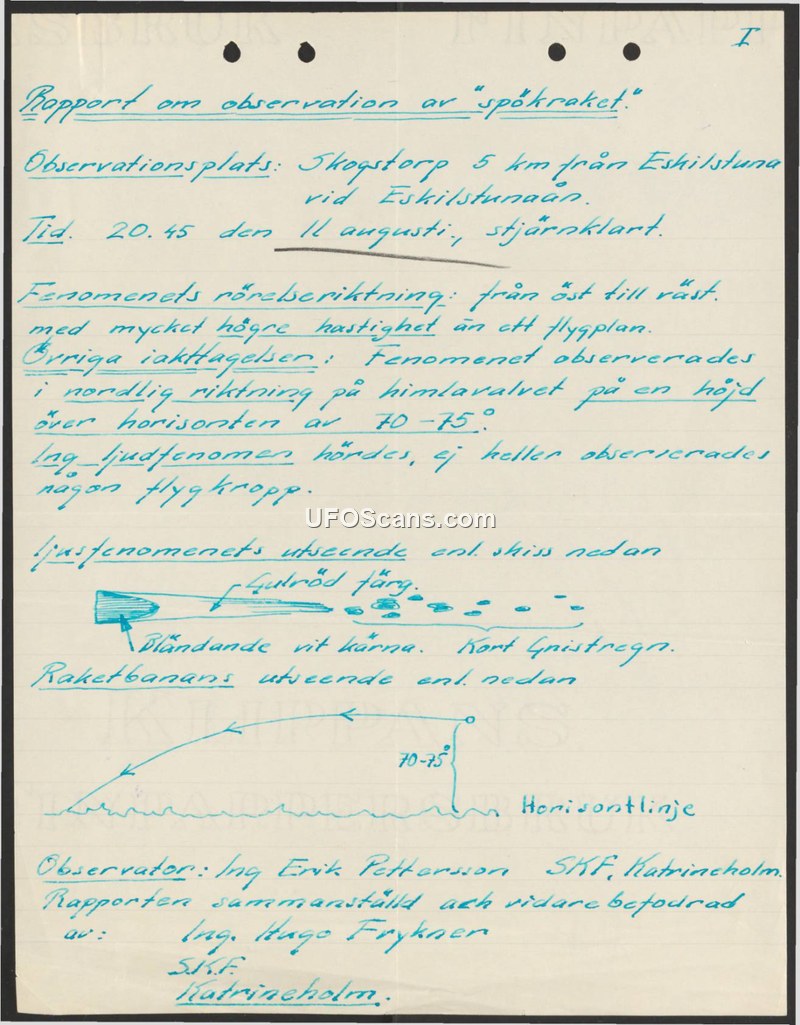 I
Rapport om observation av "spökraket."
Observationsplats: Skogstorp 5 km från Eskilstuna
vid Eskilstunaån.
Tid. 20.45 den 11 augusti., stjärnklart.
Fenomenets rörelseriktning: från öst till väst.
med mycket högre hastighet än ett flygplan.
Övriga iakttagelser: Fenomenet observerades
i nordlig riktning på himlavalvet på en höjd
över horisonten av 70-75°.
Ing ljudfenomen hördes, ej heller observerades
någon flygkropp.
UFOScans.com
Ljusfenomenets utseende enl. skiss nedan
Gulröd färg.
Bländande vit kärna. Kort Gnistregn.
Raketbanans utseende enl. nedan
70-75°
Horisontlinje
Observator: Ing Erik Pettersson SKF, Katrineholm.
Rapporten sammanställd och vidarebefodrad
av: Ing. Hugo Frykner
S.K.F.
Katrineholm.